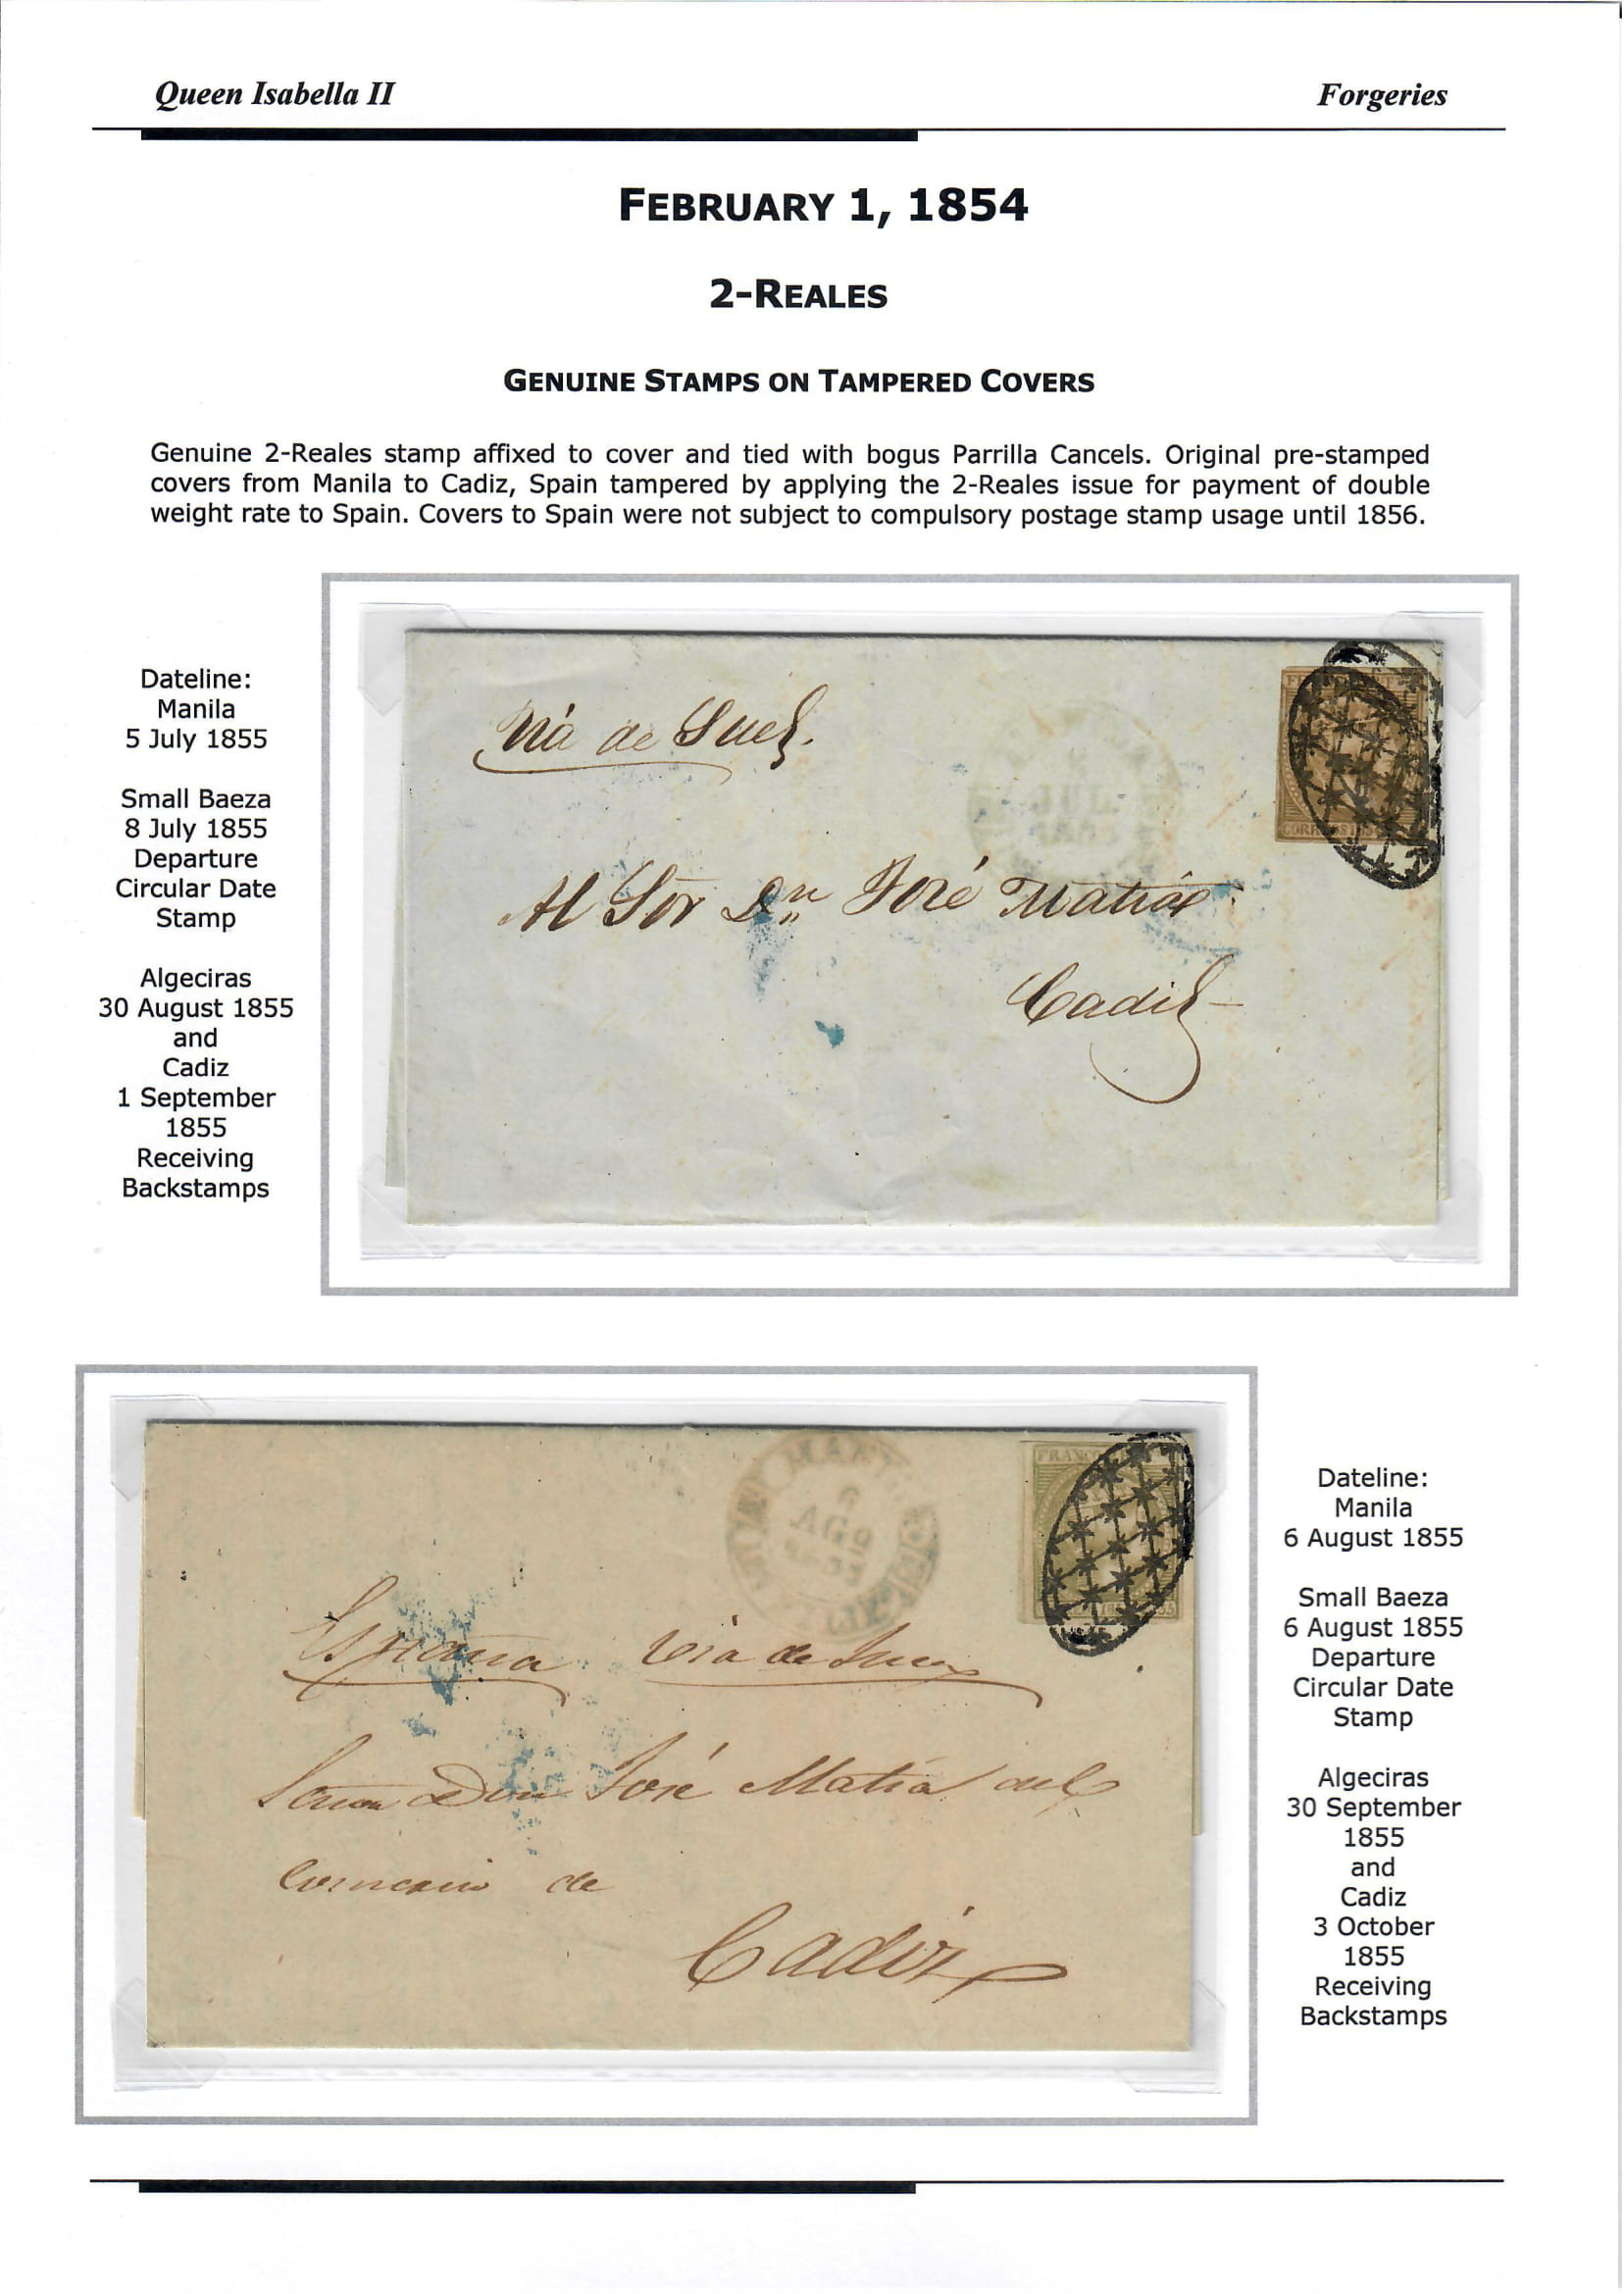 Queen Isabella II
Forgeries
FEBRUARY 1, 1854
2-REALES
GENUINE STAMPS ON TAMPERED COVERS
Genuine 2-Reales stamp affixed to cover and tied with bogus Parrilla Cancels. Original pre-stamped
covers from Manila to Cadiz, Spain tampered by applying the 2-Reales issue for payment of double
weight rate to Spain. Covers to Spain were not subject to compulsory postage stamp usage until 1856.
Dateline:
Manila
5 July 1855
Small Baeza
8 July 1855
Departure
Circular Date
Stamp
Algeciras
30 August 1855
and
Cadiz
1 September
1855
Receiving
Backstamps
Via de Suez.
JUL
Al Sor Dn José Matia
Cadiz
Dateline:
Manila
6 August 1855
Small Baeza
6 August 1855
Departure
Circular Date
Stamp
Algeciras
30 September
1855
and
Cadiz
3 October
1855
Receiving
Backstamps
España via de Suez
Señor Don José Matia del
comercio de
Cadiz